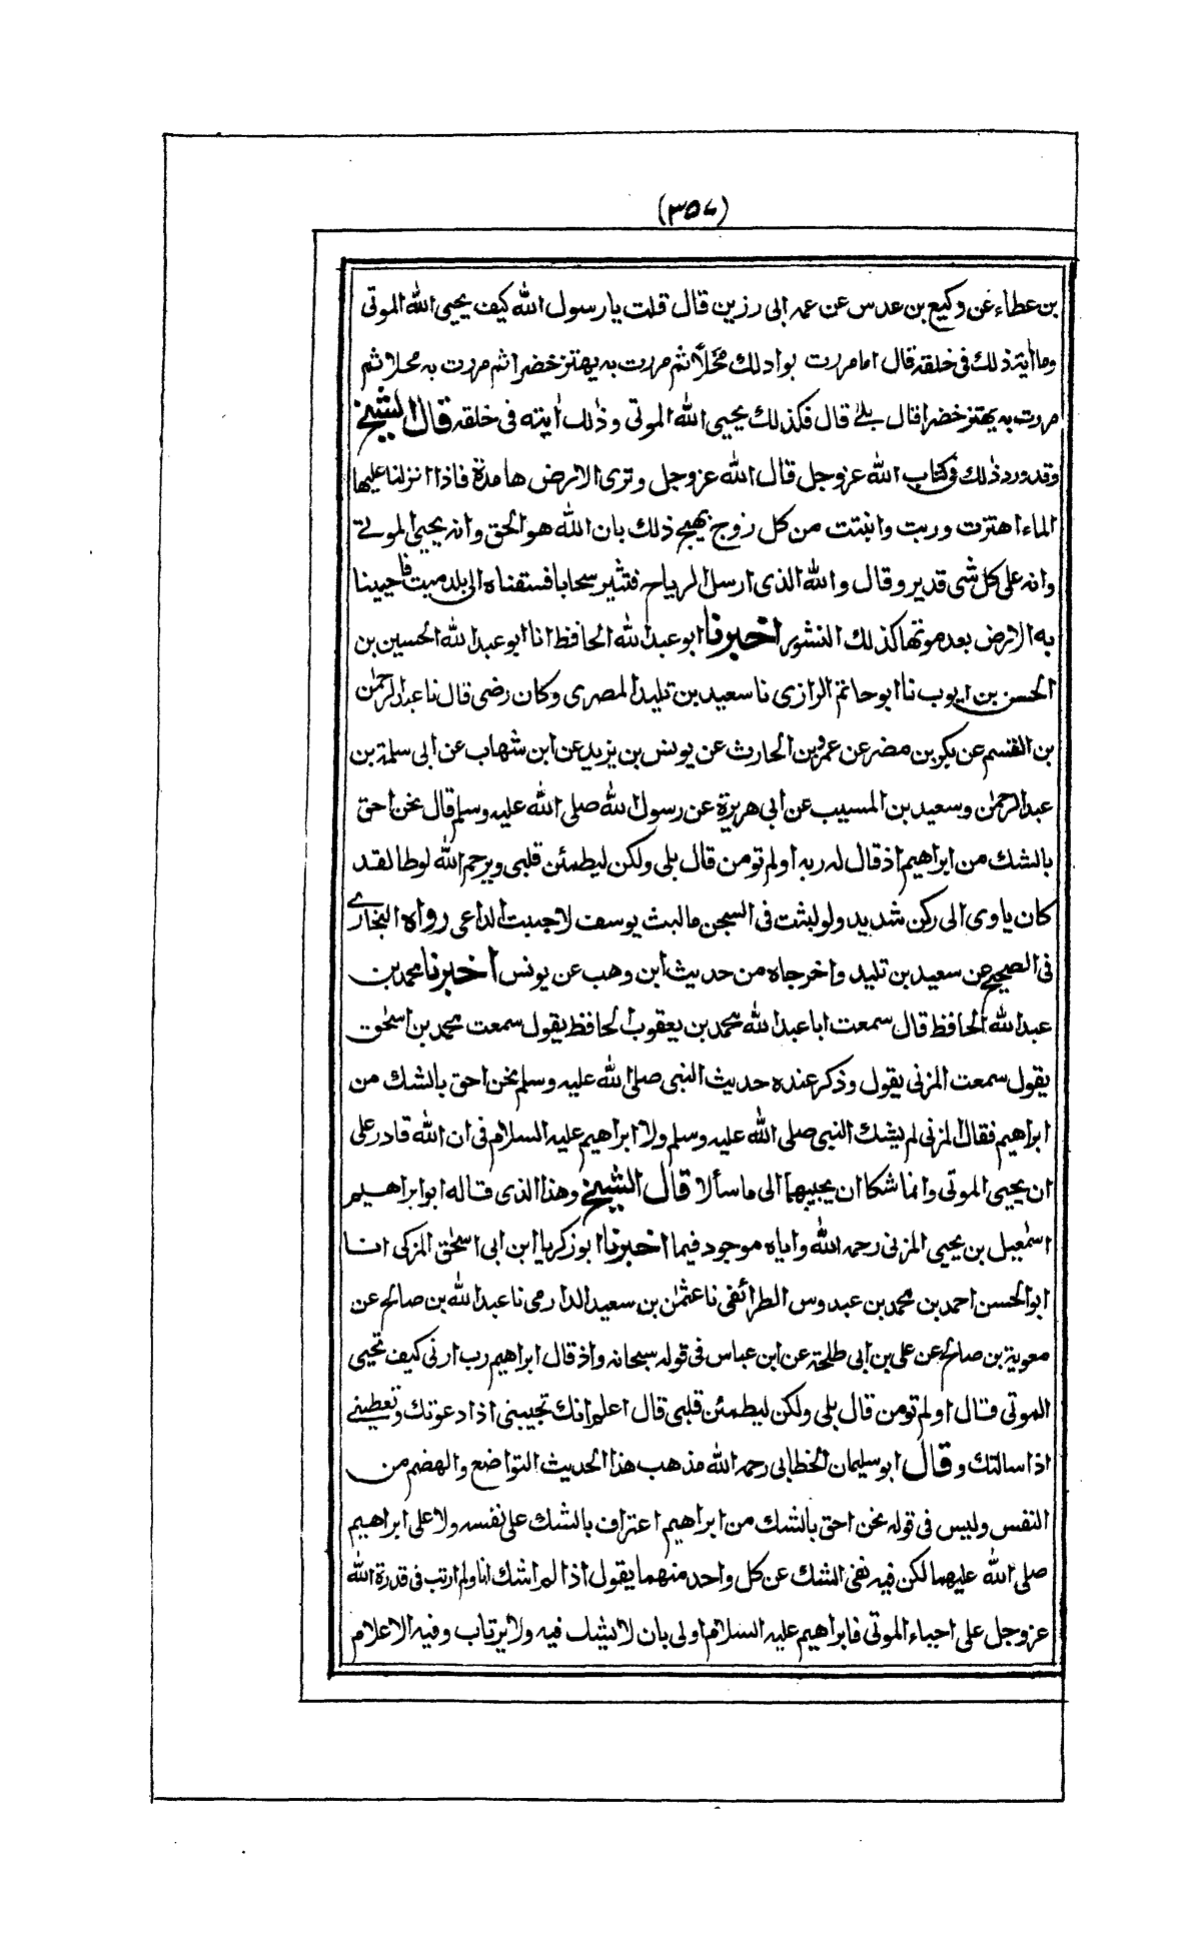 (٣٥٧)
بن عطاء عن وكيع بن عدس عن عمه ابى رزين قال قلت يا رسول الله كيف يحيى الله الموتى
وما أية ذلك فى خلقه قال اما مررت بواد لك مَحْلًا ثم مررت به يهتز خضرا ثم مررت به محلا ثم
مررت به يهتز خضرا قال بلے قال فكذلك يحيى الله الموتى وذٰلك اٰيته فى خلقه قال الشيخ
وقد ورد ذٰلك فى كتاب الله عز وجل قال الله عز وجل وترى الارض هامدة فاذا انزلنا عليها
الماء اهتزت وربت وانبتت من كل زوج بهيج ذلك بان الله هو الحق وانه يحيى الموتے
وانه على كل شى قدير وقال والله الذى ارسل الرياح فتثير سحابا فسقناه الى بلد ميت فاحيينا
به الارض بعد موتها كذلك النشور اخبرنا ابو عبد الله الحافظ انا ابو عبد الله الحسين بن
الحسن بن ايوب نا ابو حاتم الرازى نا سعيد بن تليد المصرى وكان رضى قال نا عبد الرحمٰن
بن القسم عن بكر بن مضر عن عمرو بن الحارث عن يونس بن يزيد عن ابن شهاب عن ابى سلمة بن
عبد الرحمٰن وسعيد بن المسيب عن ابى هريرة عن رسول الله صلى الله عليه وسلم قال نحن احق
بالشك من ابراهيم اذ قال له ربه اولم تومن قال بلى ولكن ليطمئن قلبى ويرحم الله لوطا لقد
كان ياوى الى ركن شديد ولو لبثت فى السجن ما لبث يوسف لاجبت الداعى رواه البخارے
فى الصحيح عن سعيد بن تليد واخرجاه من حديث ابن وهب عن يونس اخبرنا محمد بن
عبد الله الحافظ قال سمعت ابا عبد الله محمد بن يعقوب الحافظ يقول سمعت محمد بن اسحٰق
يقول سمعت المزنى يقول وذكر عنده حديث النبى صلى الله عليه وسلم نحن احق بالشك من
ابراهيم فقال المزنى لم يشك النبى صلى الله عليه وسلم ولا ابراهيم عليه السلام فى ان الله قادر على
ان يحيى الموتى وانما شكا ان يجيبهما الى ما سألا قال الشيخ وهذا الذى قاله ابو ابراهيم
اسمٰعيل بن يحيى المزنى رحمه الله واياه موجود فيما اخبرنا ابو زكريا ابن ابى اسحٰق المزكى انا
ابو الحسن احمد بن محمد بن عبدوس الطرائفى نا عثمٰن بن سعيد الدارمى نا عبد الله بن صالح عن
معوية بن صالح عن على بن ابى طلحة عن ابن عباس فى قوله سبحانه واذ قال ابراهيم رب ارنى كيف تحيى
الموتى قال اولم تومن قال بلى ولكن ليطمئن قلبى قال اعلم انك تجيبنى اذا دعوتك وتعطينے
اذا سالتك وقال ابو سليمان الخطابى رحمه الله مذهب هذا الحديث التواضع والهضم من
النفس وليس فى قوله نحن احق بالشك من ابراهيم اعتراف بالشك على نفسه ولا على ابراهيم
صلى الله عليهما لكن فيه نفى الشك عن كل واحد منهما يقول اذا لم اشك انا ولم ارتب فى قدرة الله
عز وجل على احياء الموتى فابراهيم عليه السلام اولى بان لا يشك فيه ولا يرتاب وفيه الاعلام